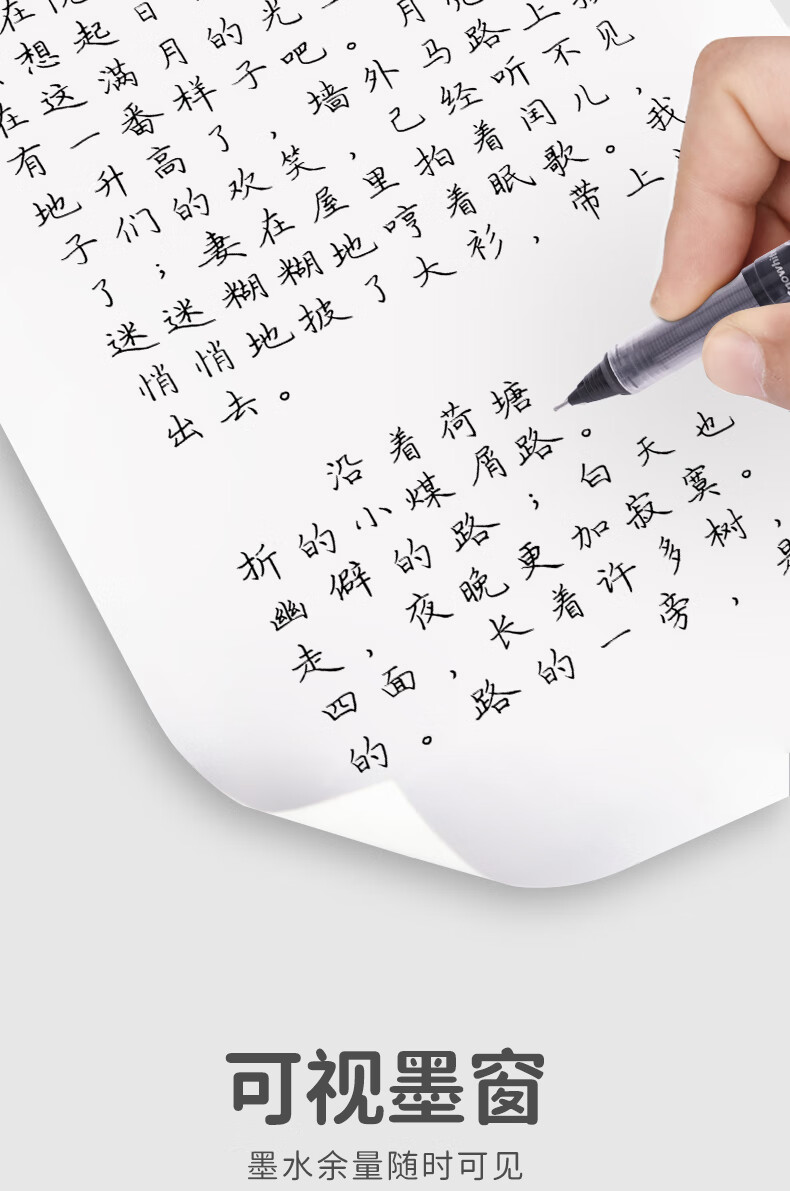 在
想起日
在这满月的光
有一番样子吧。月
地升高了，墙外马路上
子们的欢笑，已经听不见
了；妻在屋里拍着闰儿，
迷迷糊糊地哼着眠歌。我
悄悄地披了大衫，带上
出去。
沿着荷塘
折的小煤屑路。
幽僻的路；白天也
走，夜晚更加寂寞。
四面，长着许多树，
的。路的一旁，是
snowhite
可视墨窗
墨水余量随时可见